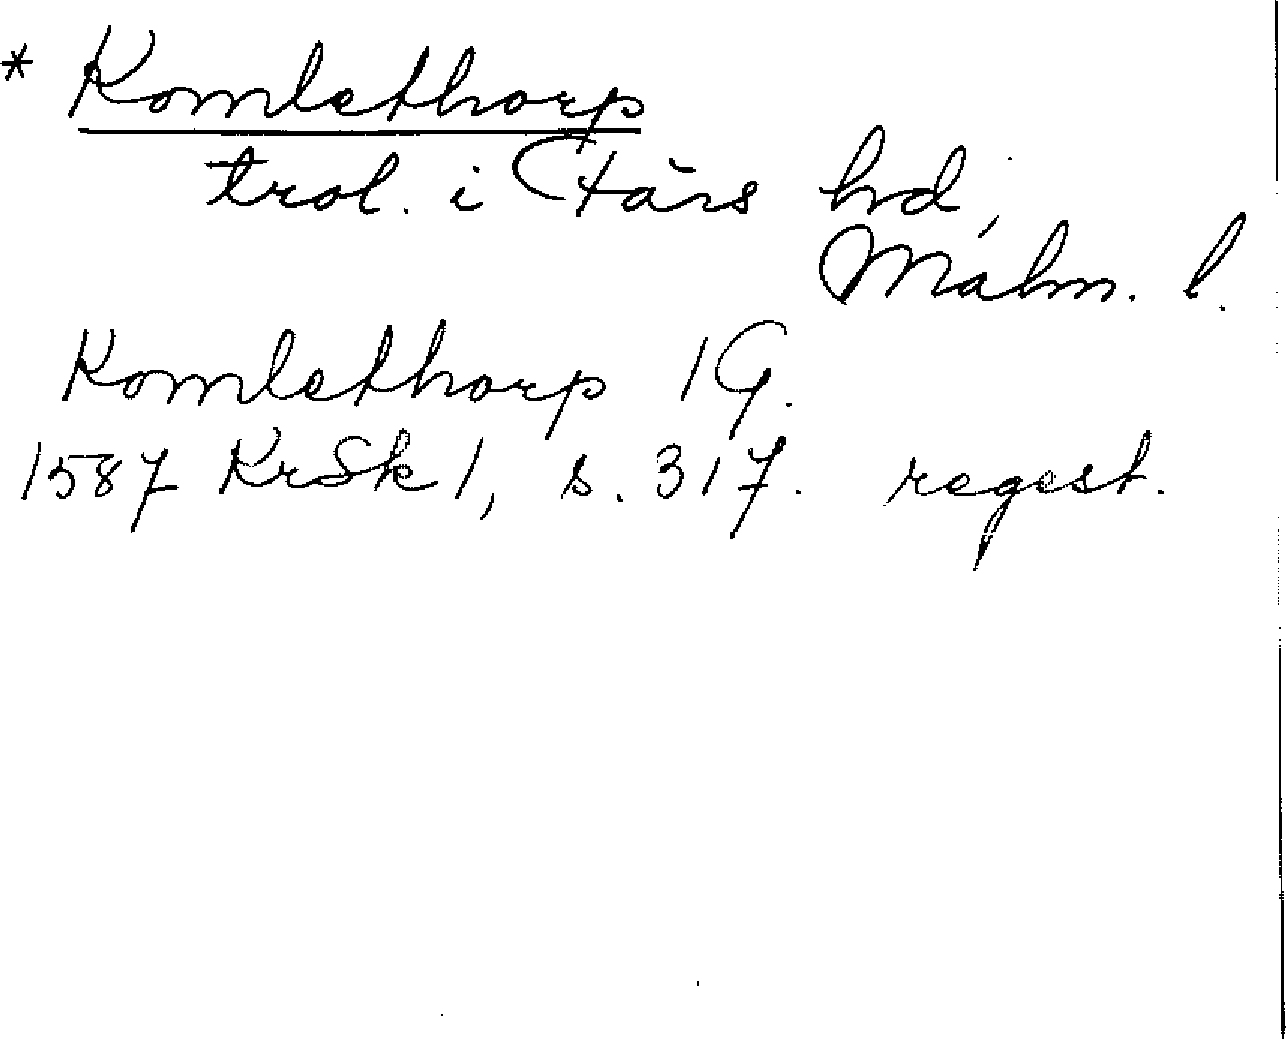 * Komlethorp
trol. i Färs hd,
Malm. l.
Komlethorp 1 G.
1587 KrSk 1, s. 317. regest.